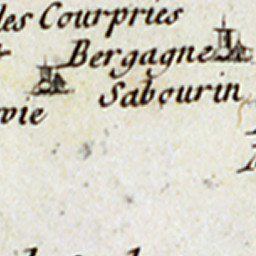 les Courpries
Bergagne
Sabourin
vie